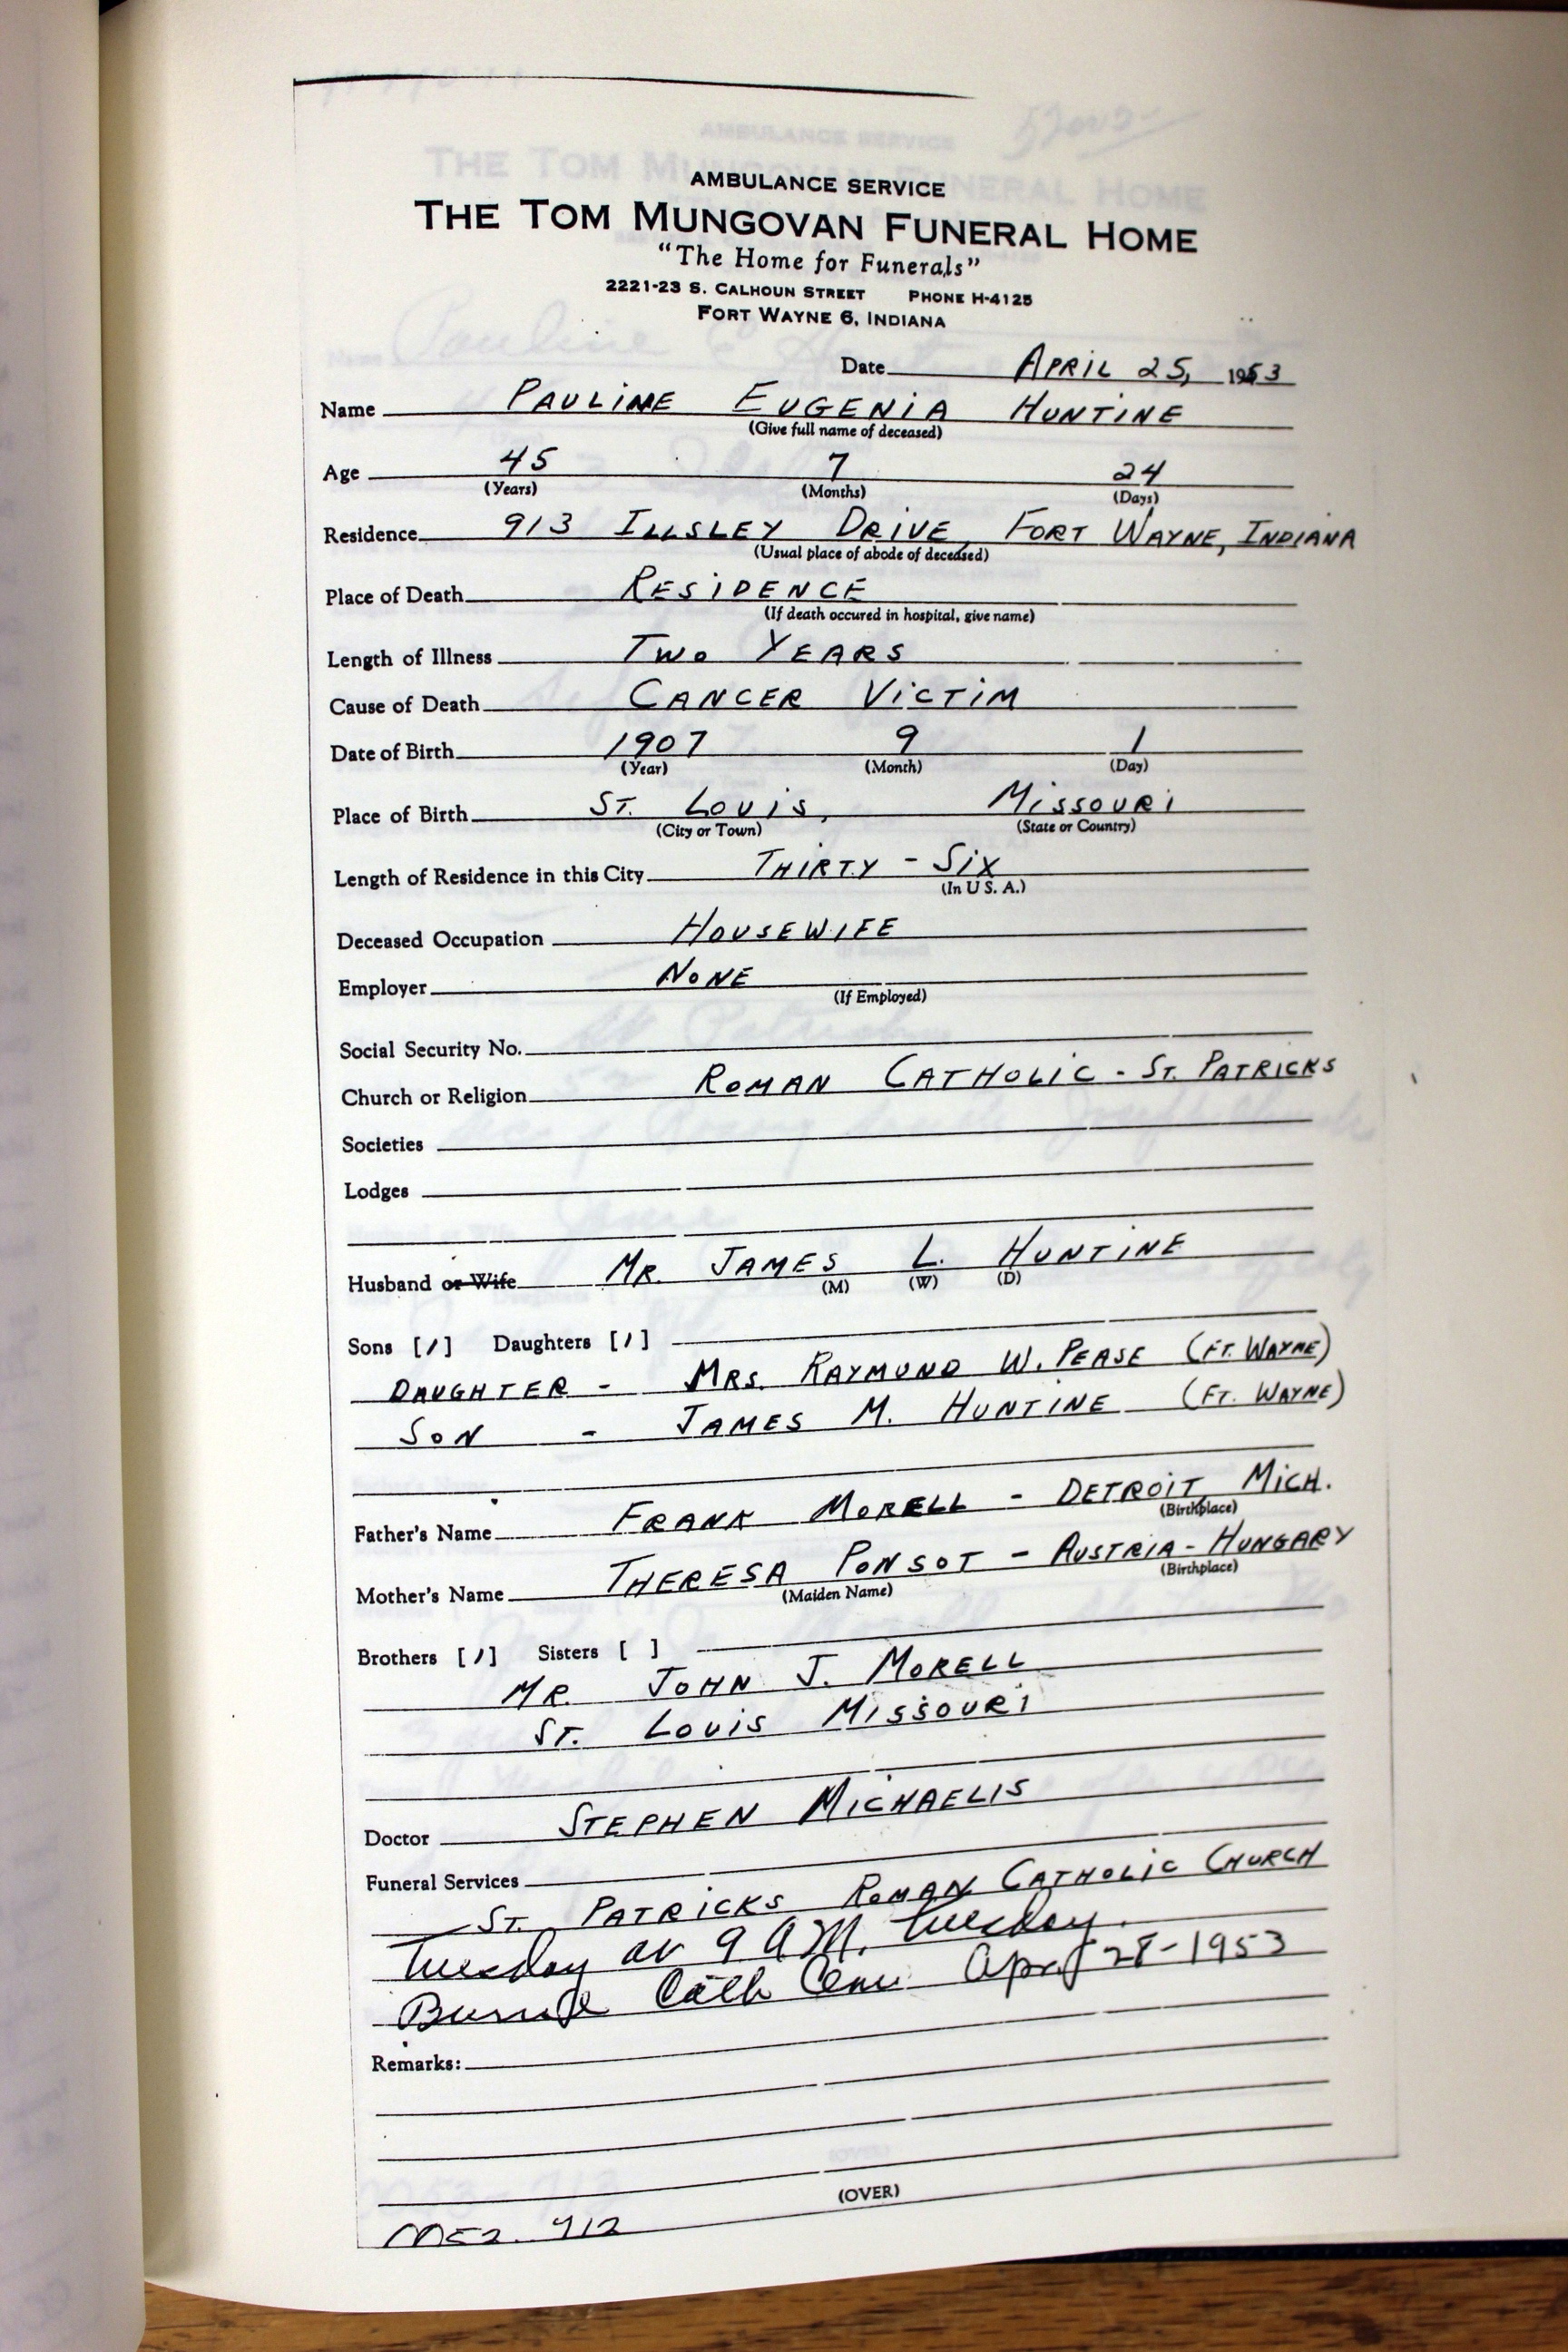 AMBULANCE SERVICE
THE TOM MUNGOVAN FUNERAL HOME
"The Home for Funerals"
2221-23 S. CALHOUN STREET PHONE H-4125
FORT WAYNE 6, INDIANA
Date APRIL 25, 1953
Name PAULINE EUGENIA HUNTINE
(Give full name of deceased)
Age 45 7 24
(Years) (Months) (Days)
Residence 913 ILLSLEY DRIVE, FORT WAYNE, INDIANA
(Usual place of abode of deceased)
Place of Death RESIDENCE
(If death occured in hospital, give name)
Length of Illness TWO YEARS
Cause of Death CANCER VICTIM
Date of Birth 1907 9 1
(Year) (Month) (Day)
Place of Birth ST. LOUIS, MISSOURI
(City or Town) (State or Country)
Length of Residence in this City THIRTY - SIX
(In U S. A.)
Deceased Occupation HOUSEWIFE
Employer NONE
(If Employed)
Social Security No.
Church or Religion ROMAN CATHOLIC - ST. PATRICKS
Societies
Lodges
Husband or Wife MR. JAMES L. HUNTINE
(M) (W) (D)
Sons [/] Daughters [/]
DAUGHTER - MRS. RAYMOND W. PEASE (FT. WAYNE)
SON - JAMES M. HUNTINE (FT. WAYNE)
Father's Name FRANK MORELL - DETROIT, MICH.
(Birthplace)
Mother's Name THERESA PONSOT - AUSTRIA - HUNGARY
(Maiden Name) (Birthplace)
Brothers [/] Sisters [ ]
MR. JOHN J. MORELL
ST. LOUIS MISSOURI
Doctor STEPHEN MICHAELIS
Funeral Services
ST. PATRICKS ROMAN CATHOLIC CHURCH
Tuesday at 9 A.M. Tuesday.
Burial Cath Cem Apr 28-1953
Remarks:
(OVER)